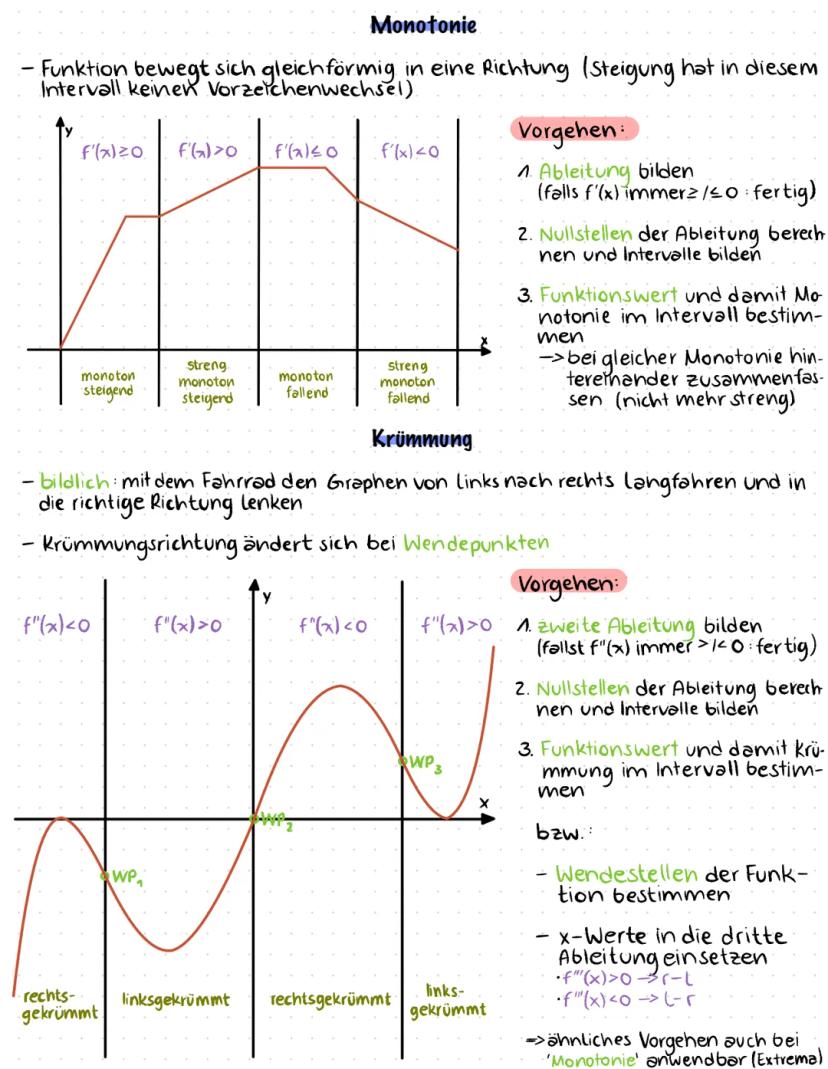 Monotonie
– Funktion bewegt sich gleichförmig in eine Richtung (Steigung hat in diesem
Intervall keinen Vorzeichenwechsel)
y
f'(x)≥0
f'(x)>0
f'(x)≤0
f'(x)<0
x
monoton
steigend
streng
monoton
steigend
monoton
fallend
streng
monoton
fallend
Vorgehen:
1. Ableitung bilden
(falls f'(x) immer ≥/≤ 0 : fertig)
2. Nullstellen der Ableitung berech
nen und Intervalle bilden
3. Funktionswert und damit Mo-
notonie im Intervall bestim-
men
–> bei gleicher Monotonie hin-
tereinander zusammenfas-
sen (nicht mehr streng)
Krümmung
– bildlich: mit dem Fahrrad den Graphen von links nach rechts langfahren und in
die richtige Richtung lenken
– Krümmungsrichtung ändert sich bei Wendepunkten
f"(x)<0
f"(x)>0
y
f"(x)<0
f"(x)>0
WP3
x
WP2
WP1
rechts-
gekrümmt
linksgekrümmt
rechtsgekrümmt
links-
gekrümmt
Vorgehen:
1. zweite Ableitung bilden
(fallst f"(x) immer >/< 0 : fertig)
2. Nullstellen der Ableitung berech
nen und Intervalle bilden
3. Funktionswert und damit Krü-
mmung im Intervall bestim-
men
bzw.:
– Wendestellen der Funk-
tion bestimmen
– x-Werte in die dritte
Ableitung einsetzen
· f'''(x)>0 –> r-l
· f'''(x)<0 –> l-r
=> ähnliches Vorgehen auch bei
'Monotonie' anwendbar (Extrema)